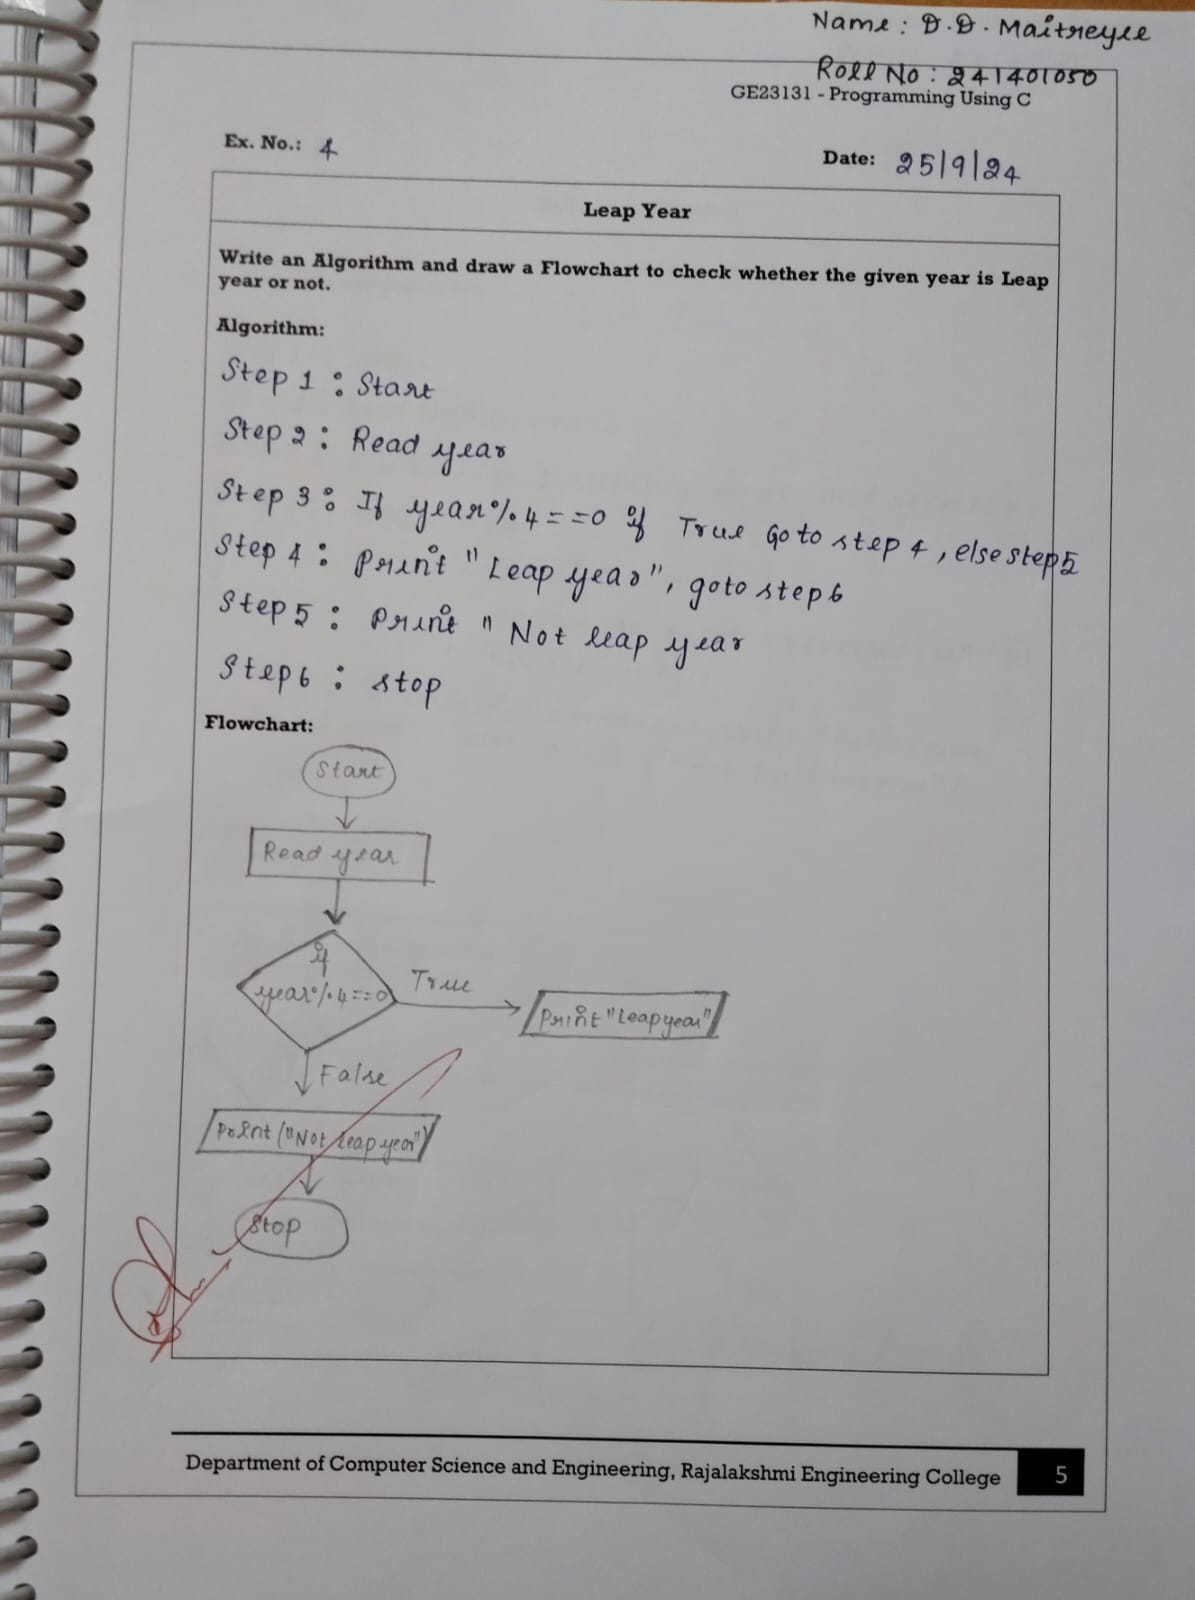 Name : D.D. Maitreyee
Roll No : 241401050
GE23131 - Programming Using C
Ex. No.: 4
Date: 25/9/24
Leap Year
Write an Algorithm and draw a Flowchart to check whether the given year is Leap
year or not.
Algorithm:
Step 1 : Start
Step 2 : Read year
Step 3 : If year%4==0 if True Go to step 4, else step 5
Step 4 : Print "Leap year", goto step 6
Step 5 : Print " Not leap year
Step 6 : stop
Flowchart:
Start
Read year
if
year%4==0
True
Print "Leap year"
False
Print ("Not leap year")
Stop
Department of Computer Science and Engineering, Rajalakshmi Engineering College
5